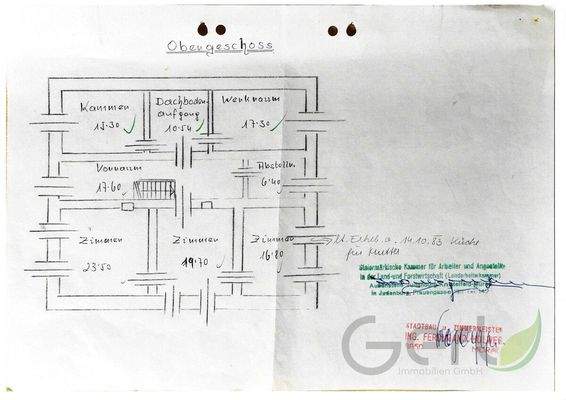 Obergeschoss
Kammer
15.30
Dachboden-
aufgang
10.54
Werkraum
17.30
Vorraum
17.60
Abstellr.
6.40
Zimmer
23.50
Zimmer
19.70
Zimmer
16.80
14.10.83 Küche
für
Steiermärkische Kammer für Arbeiter und Angestellte
in der Land-und Forstwirtschaft (Landarbeiterkammer)
in Judenburg,
STADTBAU ZIMMERMEISTER
ING.
Gerl
Immobilien GmbH